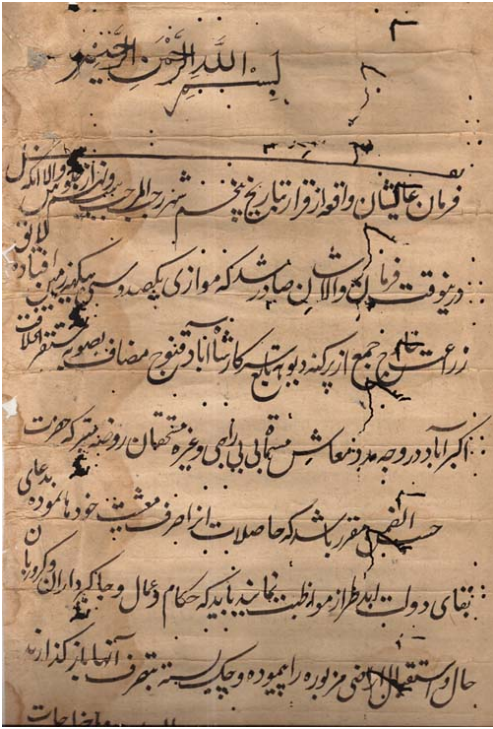 بسم الله الرحمن الرحیم
فرمان عالیشان واقعه از قرار بتاریخ پنجم شهر رجب المرجب
درینوقت فرمان والاشان صادر شد که موازی یکصد و سی بیگهه زمین افتاده لایق
زراعت خارج جمع از پرگنه دیوهه تابع سرکار شاه آباد قنوج مضاف بصوبه مستقر الخلافت
اکبرآباد در وجه مدد معاش مسماة بی بی راجی وغیره مستحقان روضه متبرکه حضرت
حسب الضمن مقرر باشد که حاصلات آنرا صرف معیشت خودها نموده بدعای
بقای دولت ابد طراز مواظبت نمایند باید که حکام و عمال و جاگیرداران و کروریان
حال و استقبال اراضی مزبوره را پیموده و چک بسته بتصرف آنها باز گذارند